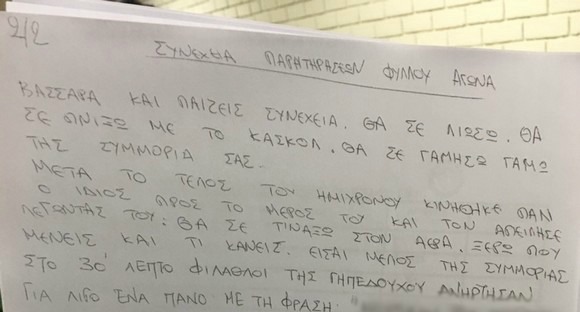 2/2
ΣΥΝΕΧΕΙΑ ΠΑΡΗΤΗΡΑΣΕΩΝ ΦΥΛΛΟΥ ΑΓΩΝΑ
ΒΑΣΣΑΡΑ ΚΑΙ ΠΑΙΖΕΙΣ ΣΥΝΕΧΕΙΑ. ΘΑ ΣΕ ΛΙΩΣΩ. ΘΑ
ΣΕ ΠΝΙΞΩ ΜΕ ΤΟ ΚΑΣΚΟΛ. ΘΑ ΣΕ ΓΑΜΗΣΩ ΓΑΜΩ
ΤΗΣ ΣΥΜΜΟΡΙΑ ΣΑΣ.
ΜΕΤΑ ΤΟ ΤΕΛΟΣ ΤΟΥ ΗΜΙΧΡΟΝΟΥ ΚΙΝΗΘΗΚΕ ΠΑΛΙ
Ο ΙΔΙΟΣ ΠΡΟΣ ΤΟ ΜΕΡΟΣ ΤΟΥ ΚΑΙ ΤΟΝ ΑΠΕΙΛΗΣΕ
ΛΕΓΟΝΤΑΣ ΤΟΥ: ΘΑ ΣΕ ΤΙΝΑΞΩ ΣΤΟΝ ΑΕΡΑ. ΞΕΡΩ ΠΟΥ
ΜΕΝΕΙΣ ΚΑΙ ΤΙ ΚΑΝΕΙΣ. ΕΙΣΑΙ ΜΕΛΟΣ ΤΗΣ ΣΥΜΜΟΡΙΑΣ
ΣΤΟ 30' ΛΕΠΤΟ ΦΙΛΑΘΛΟΙ ΤΗΣ ΓΗΠΕΔΟΥΧΟΥ ΑΝΗΡΤΗΣΑΝ
ΓΙΑ ΛΙΓΟ ΕΝΑ ΠΑΝΟ ΜΕ ΤΗ ΦΡΑΣΗ: "